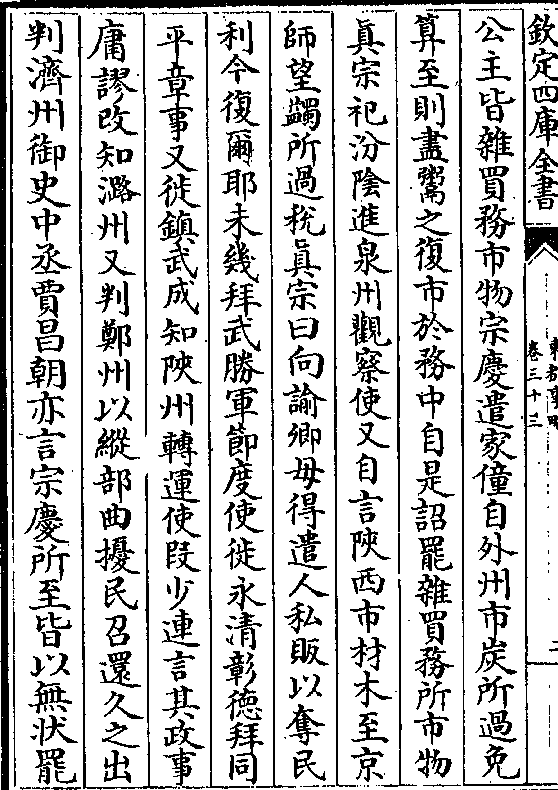 欽定四庫全書
卷三十三
公主皆雜買務市物宗慶遣家僮自外州市炭所過免
算至則盡鬻之復市於務中自是詔罷雜買務所市物
眞宗祀汾陰進泉州觀察使又自言陜西市材木至京
師望蠲所過稅眞宗曰向諭卿毋得遣人私販以奪民
利今復爾耶未幾拜武勝軍節度使徙永清彰德拜同
平章事又徙鎮武成知陜州轉運使段少連言其政事
庸謬改知潞州又判鄭州以縱部曲擾民召還久之出
判濟州御史中丞賈昌朝亦言宗慶所至皆以無狀罷